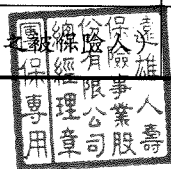 之被保險人）
遠雄人壽
保險事業股
份有限公司
總經理章
團保專用